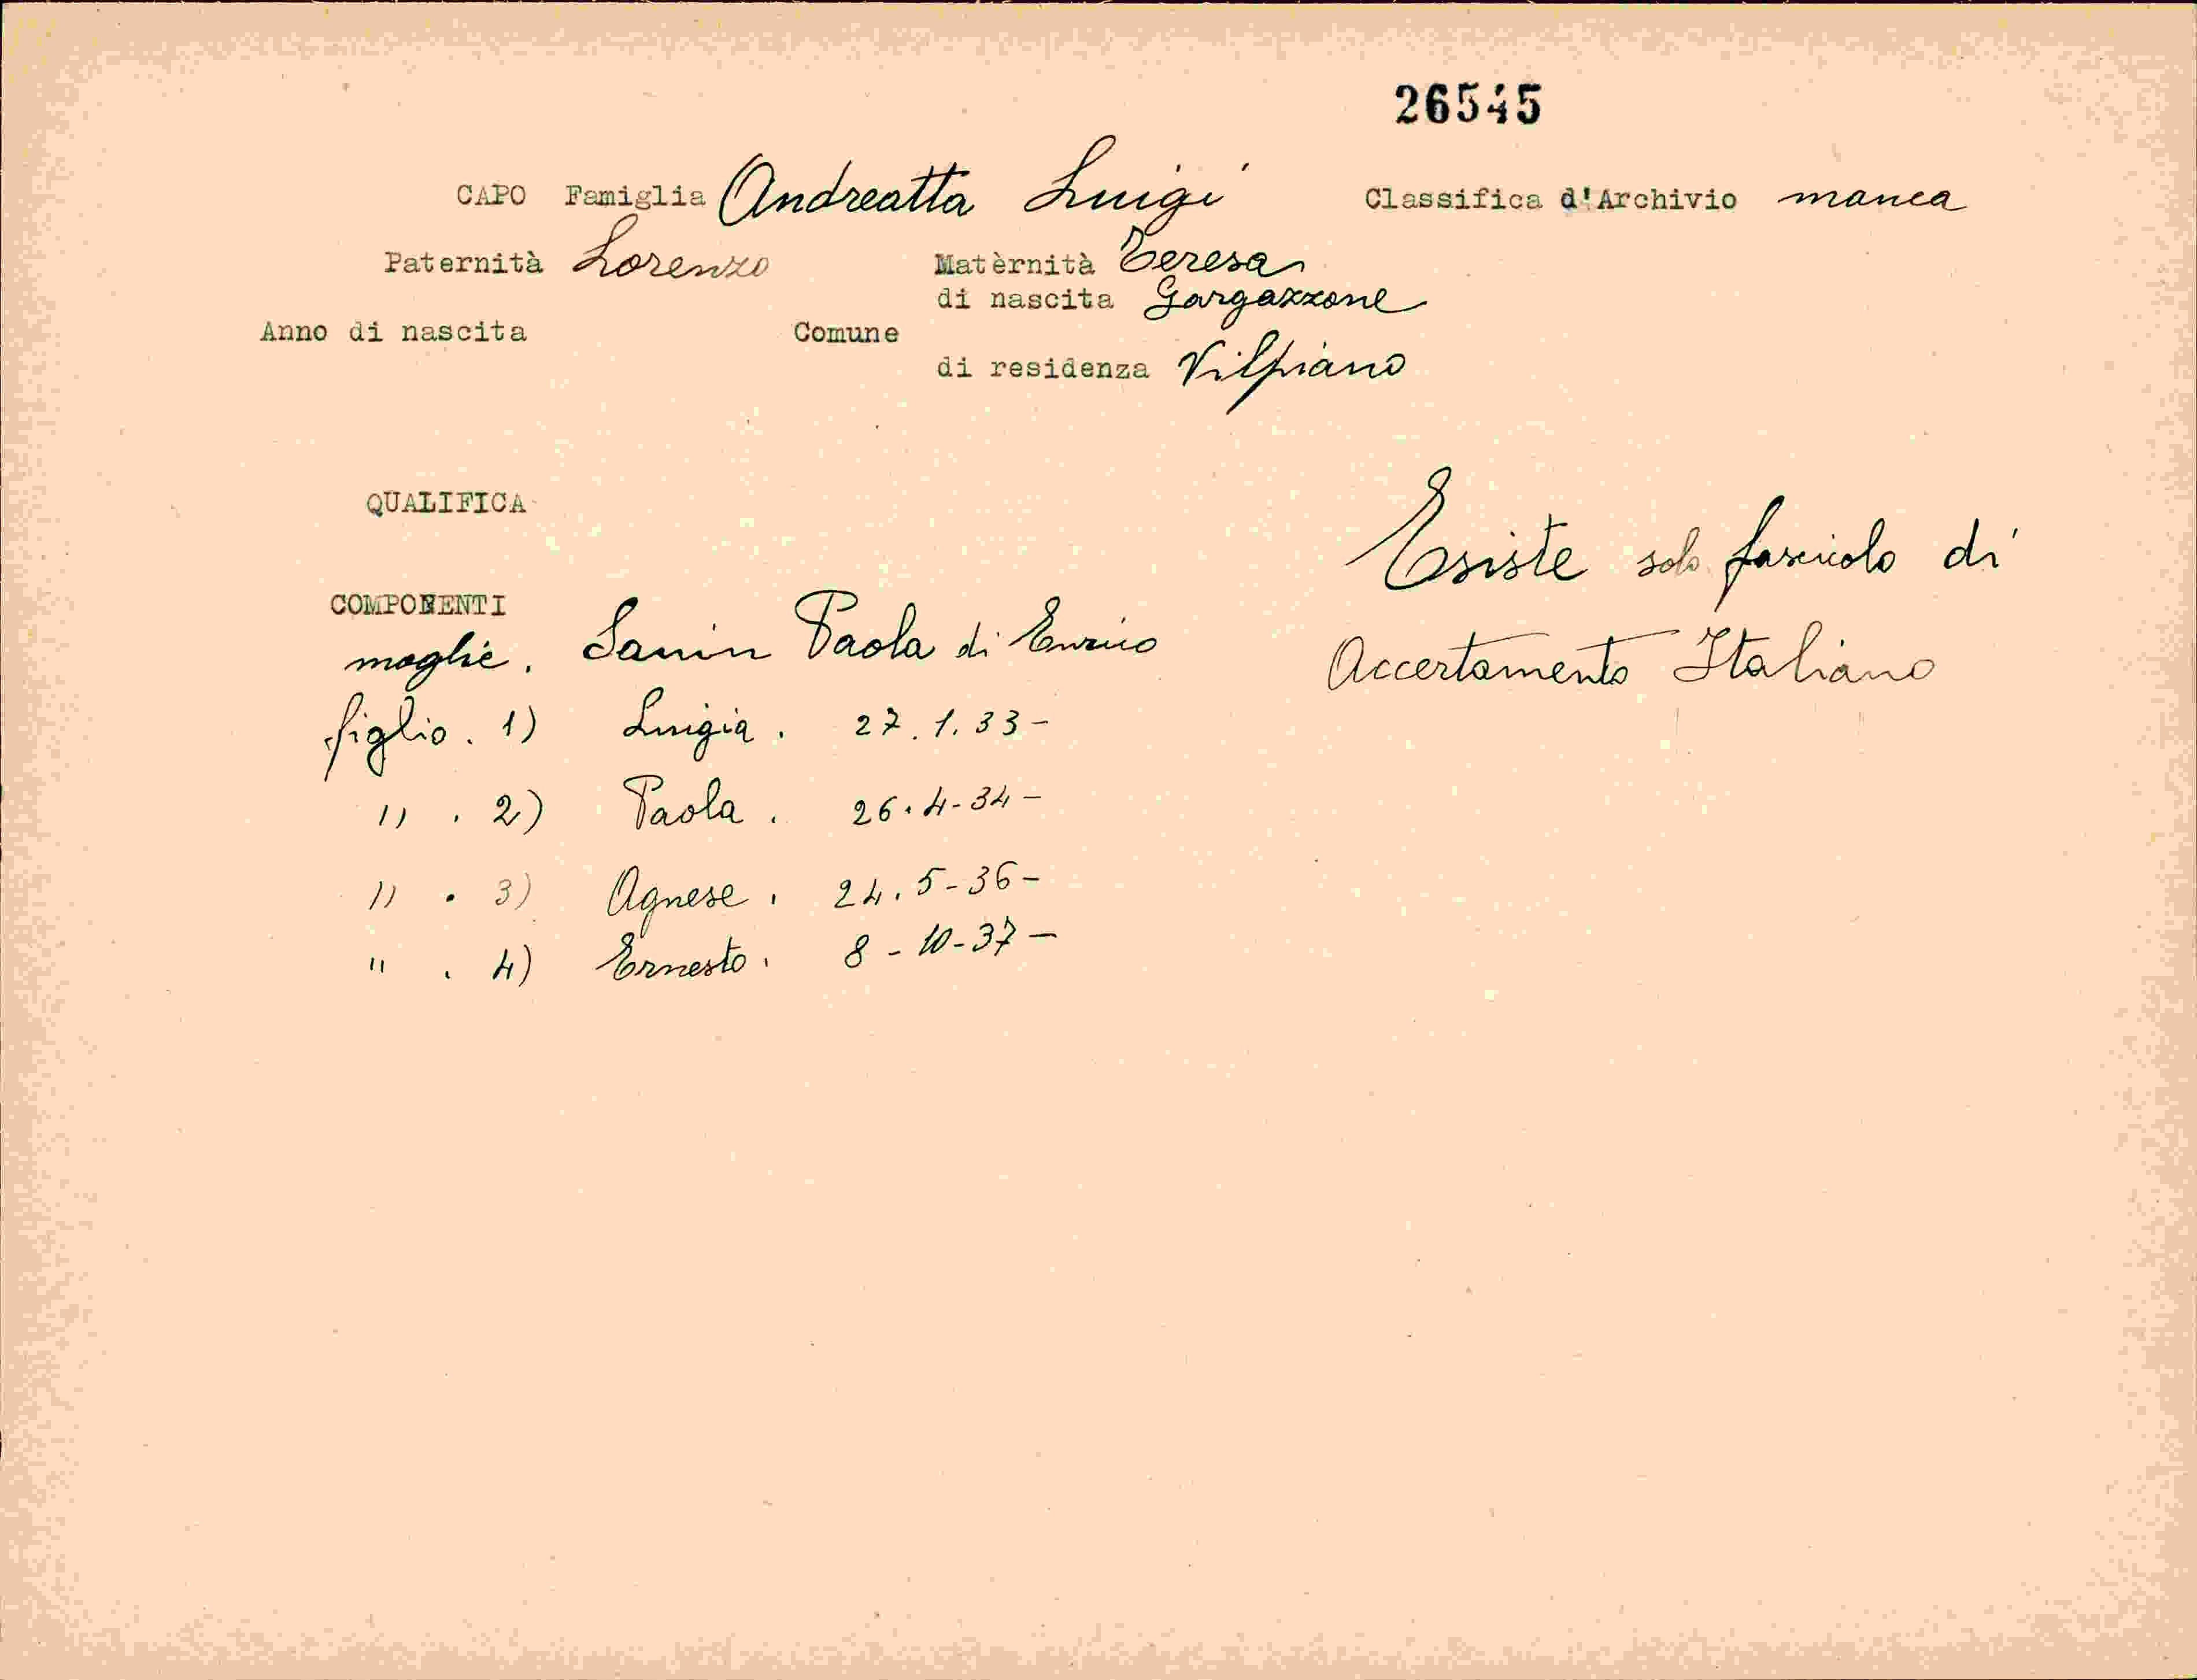 26545
CAPO Famiglia Andreatta Luigi Classifica d'Archivio manca
Paternità Lorenzo Matèrnità Teresa
di nascita Gargazzone
Anno di nascita Comune
di residenza Vilpiano
QUALIFICA
Esiste solo fascicolo di
Accertamento Italiano
COMPONENTI
moglie. Sanin Paola di Enrico
figlio. 1) Luigia. 27.1.33-
" . 2) Paola. 26.4-34-
" . 3) Agnese. 24.5-36-
" . 4) Ernesto. 8-10-37-